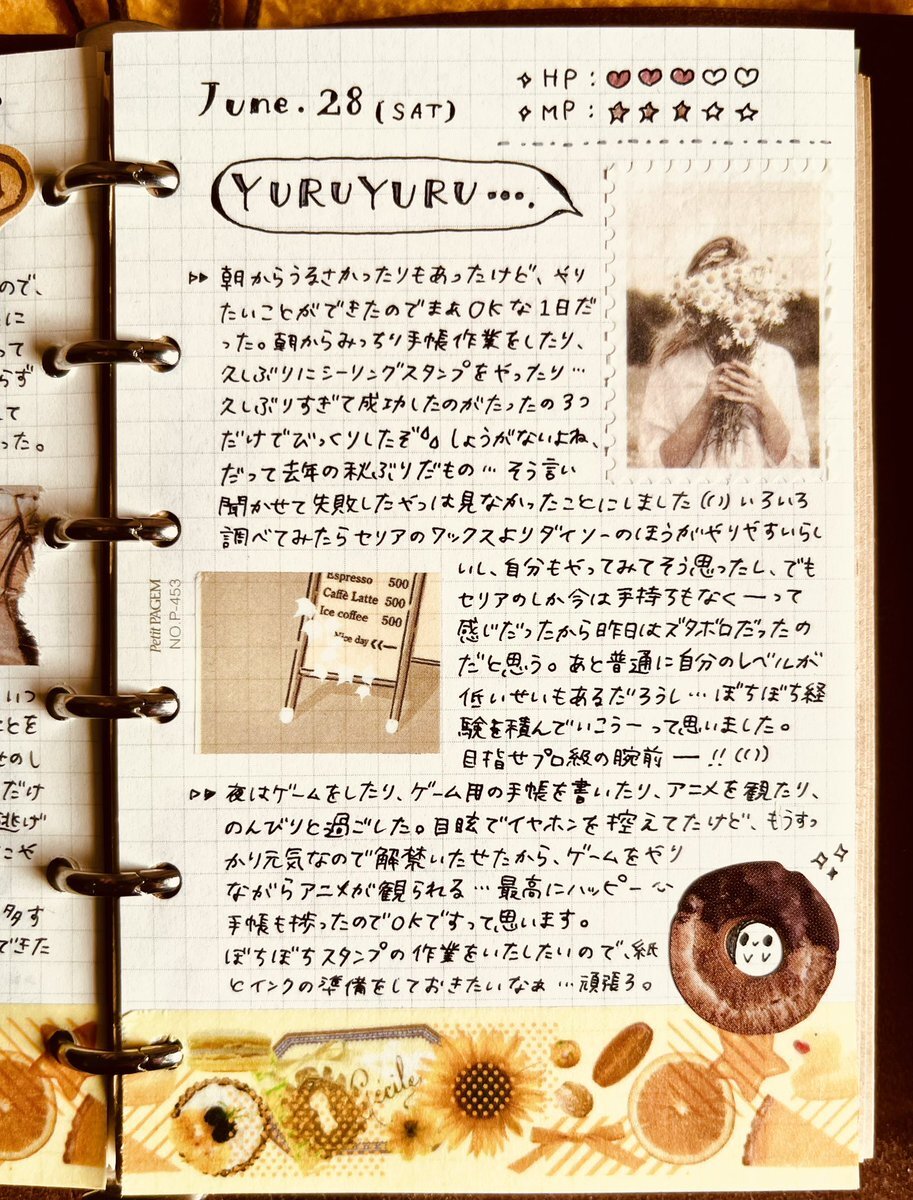 June. 28 (SAT)
HP:
MP:
YURUYURU….
朝からうるさかったりもあったけど、やり
たいことができたのでまぁOKな1日だ
った。朝からみっちり手帳作業をしたり、
久しぶりにシーリングスタンプをやったり…
久しぶりすぎて成功したのがたったの3つ
だけでびっくりしたぞ しょうがないよね、
だって去年の秋ぶりだもの…そう言い
聞かせて失敗したやつは見なかったことにしました いろいろ
調べてみたらセリアのワックスよりダイソーのほうがやりやすいらし
いし、自分もやってみてそう思ったし、でも
セリアのしか今は手持ちもなくーって
感じだったから昨日はズタボロだったの
だと思う。あと普通に自分のレベルが
低いせいもあるだろうし…ぼちぼち経
験を積んでいこうーって思いました。
目指せプロ級の腕前ー!!
Espresso 500
Caffè Latte 500
Ice coffee 500
Nice day
Petit PAGEM
NO P-453
夜はゲームをしたり、ゲーム用の手帳を書いたり、アニメを観たり、
のんびりと過ごした。目眩でイヤホンを控えてたけど、もうすっ
かり元気なので解禁いたせたから、ゲームをやり
ながらアニメが観られる…最高にハッピー
手帳も捗ったのでOKですって思います。
ぼちぼちスタンプの作業をいたしたいので、紙
とインクの準備をしておきたいなぁ…頑張ろ。
Cécile
ので、
に
って
らず
て
った。
いつ
ことを
せのし
だけ
逃げ
こや
多す
できた